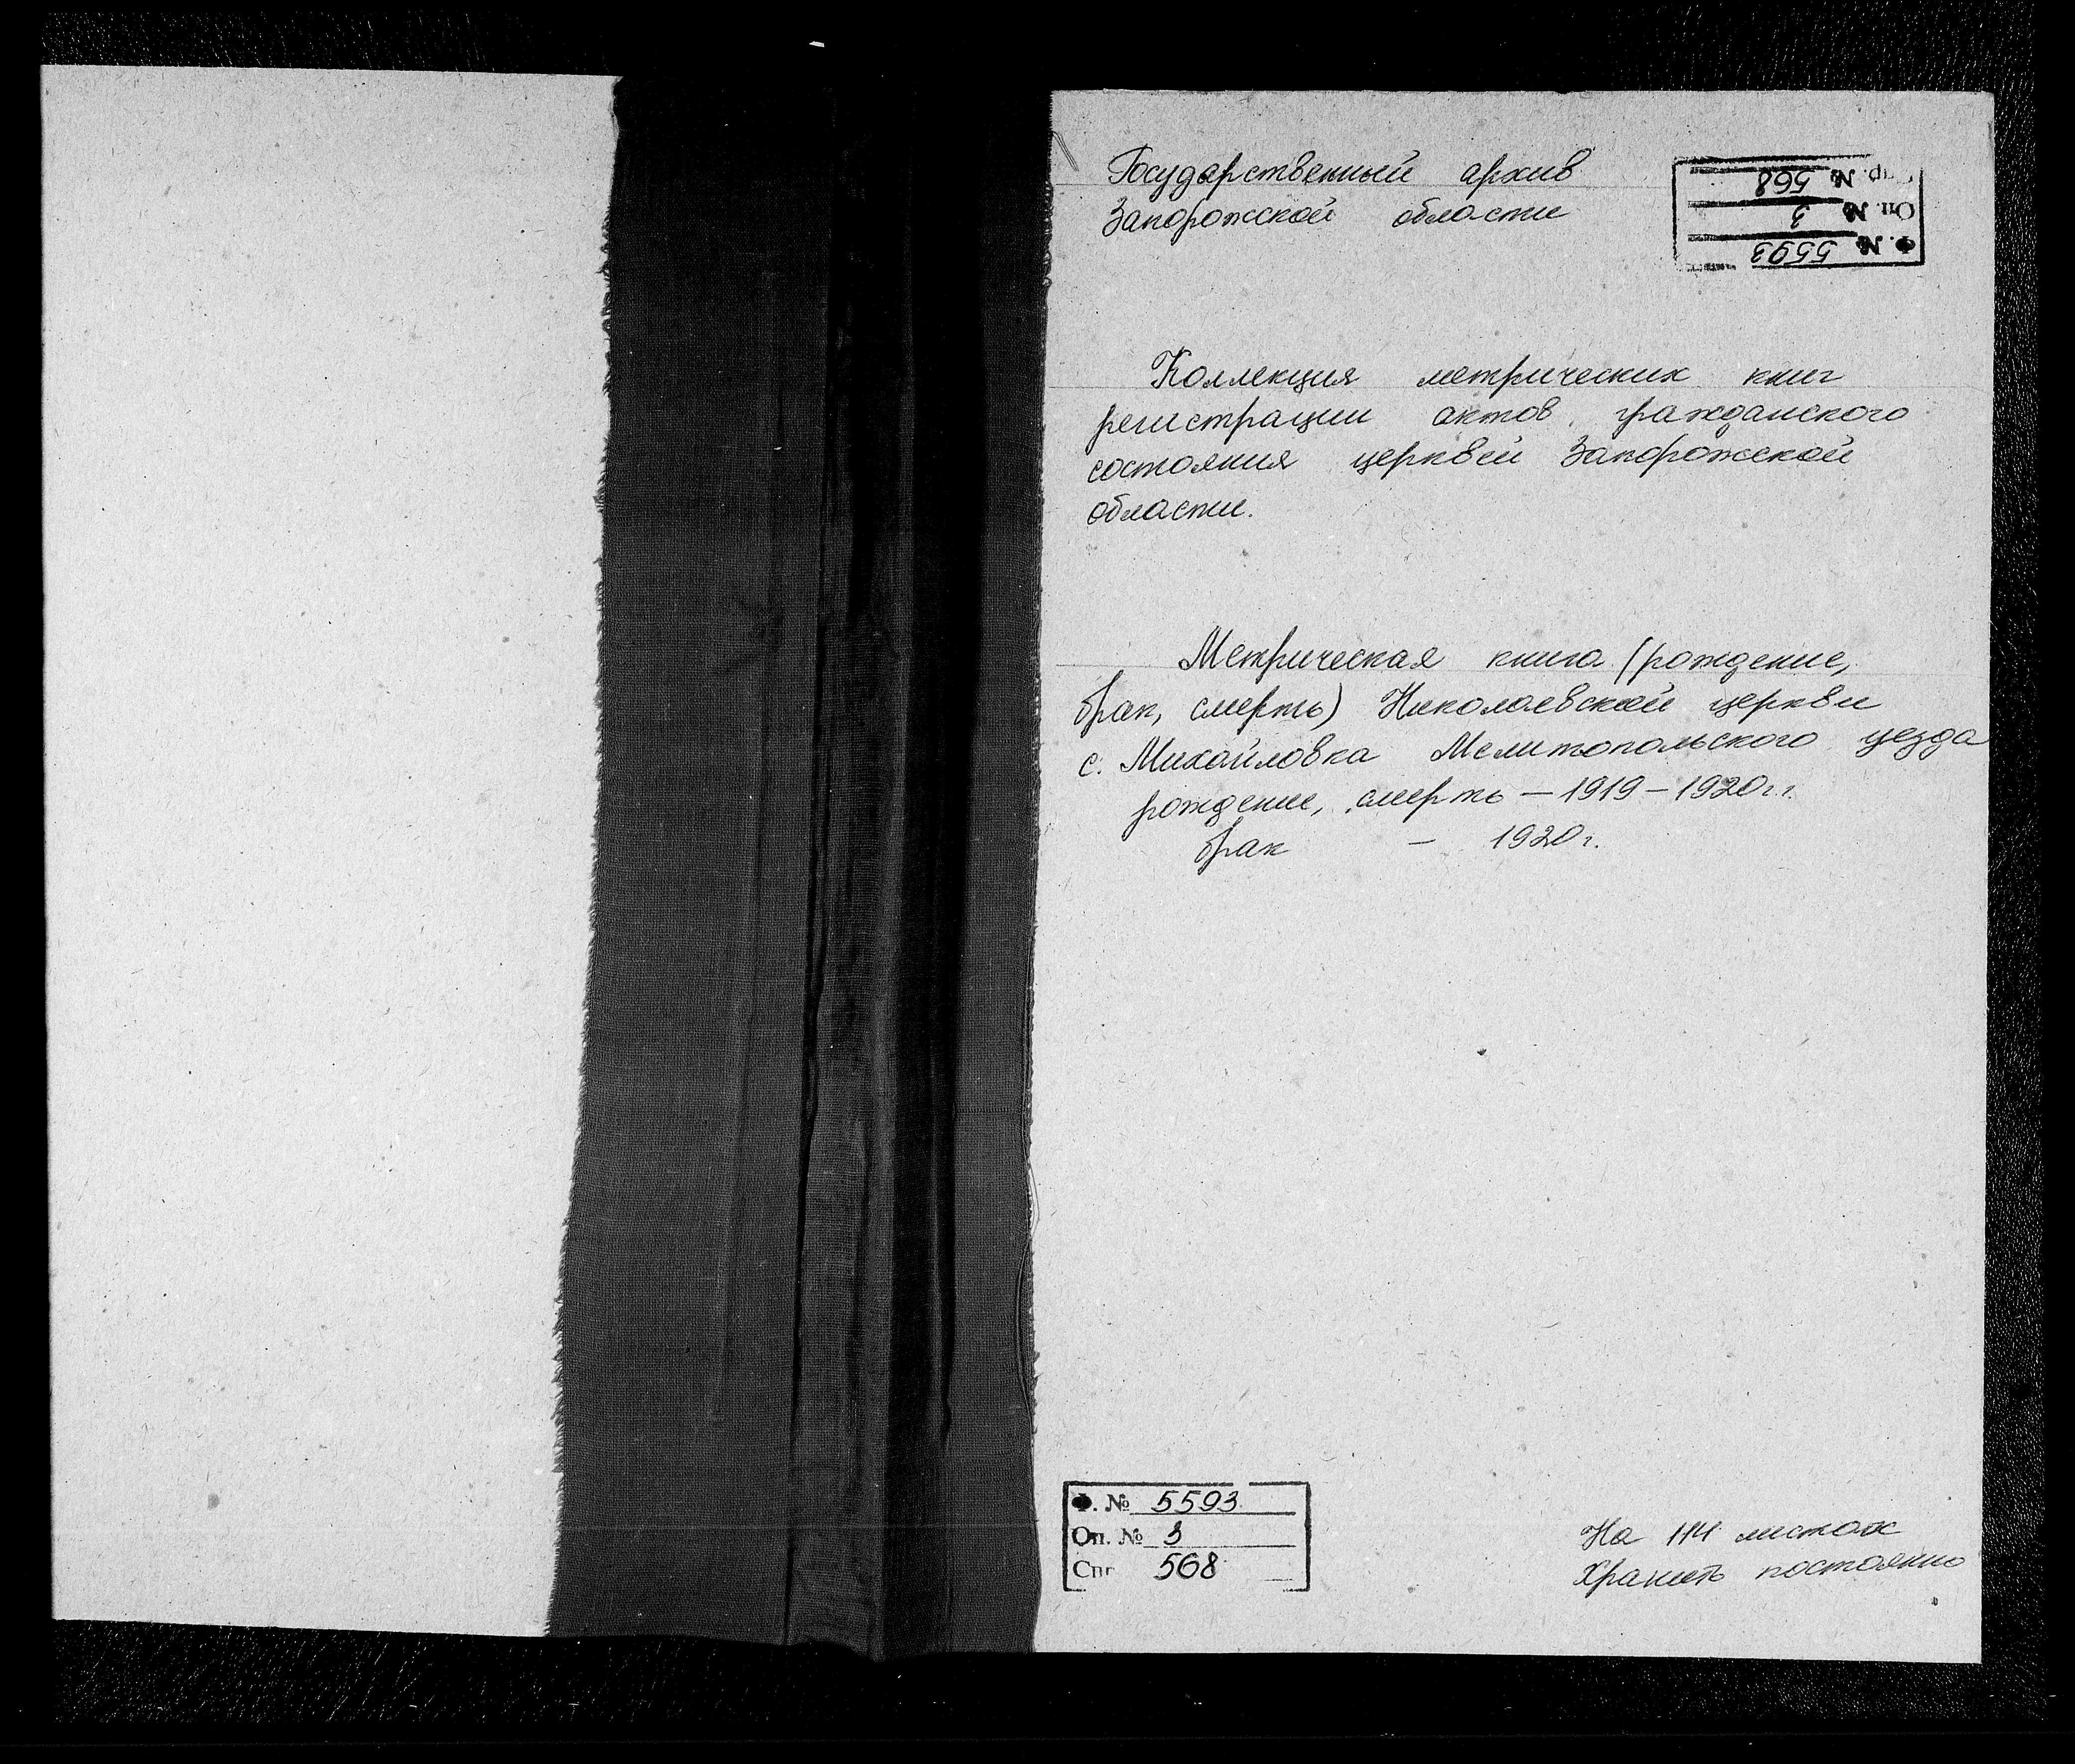 Государственный архив
Запорожской области
Ф. № 5593
Оп. № 3
пр. № 568
Коллекция метрических книг
регистрации актов гражданского
состояния церквей Запорожской
области.
Метрическая книга (рождение,
брак, смерть) Николаевской церкви
с. Михайловка Мелитопольского уезда
рождение, смерть — 1919 – 1920 г.г.
брак — 1920 г.
Ф. № 5593
Оп. № 3
Спр 568
На 114 листах
Хранить постоянно